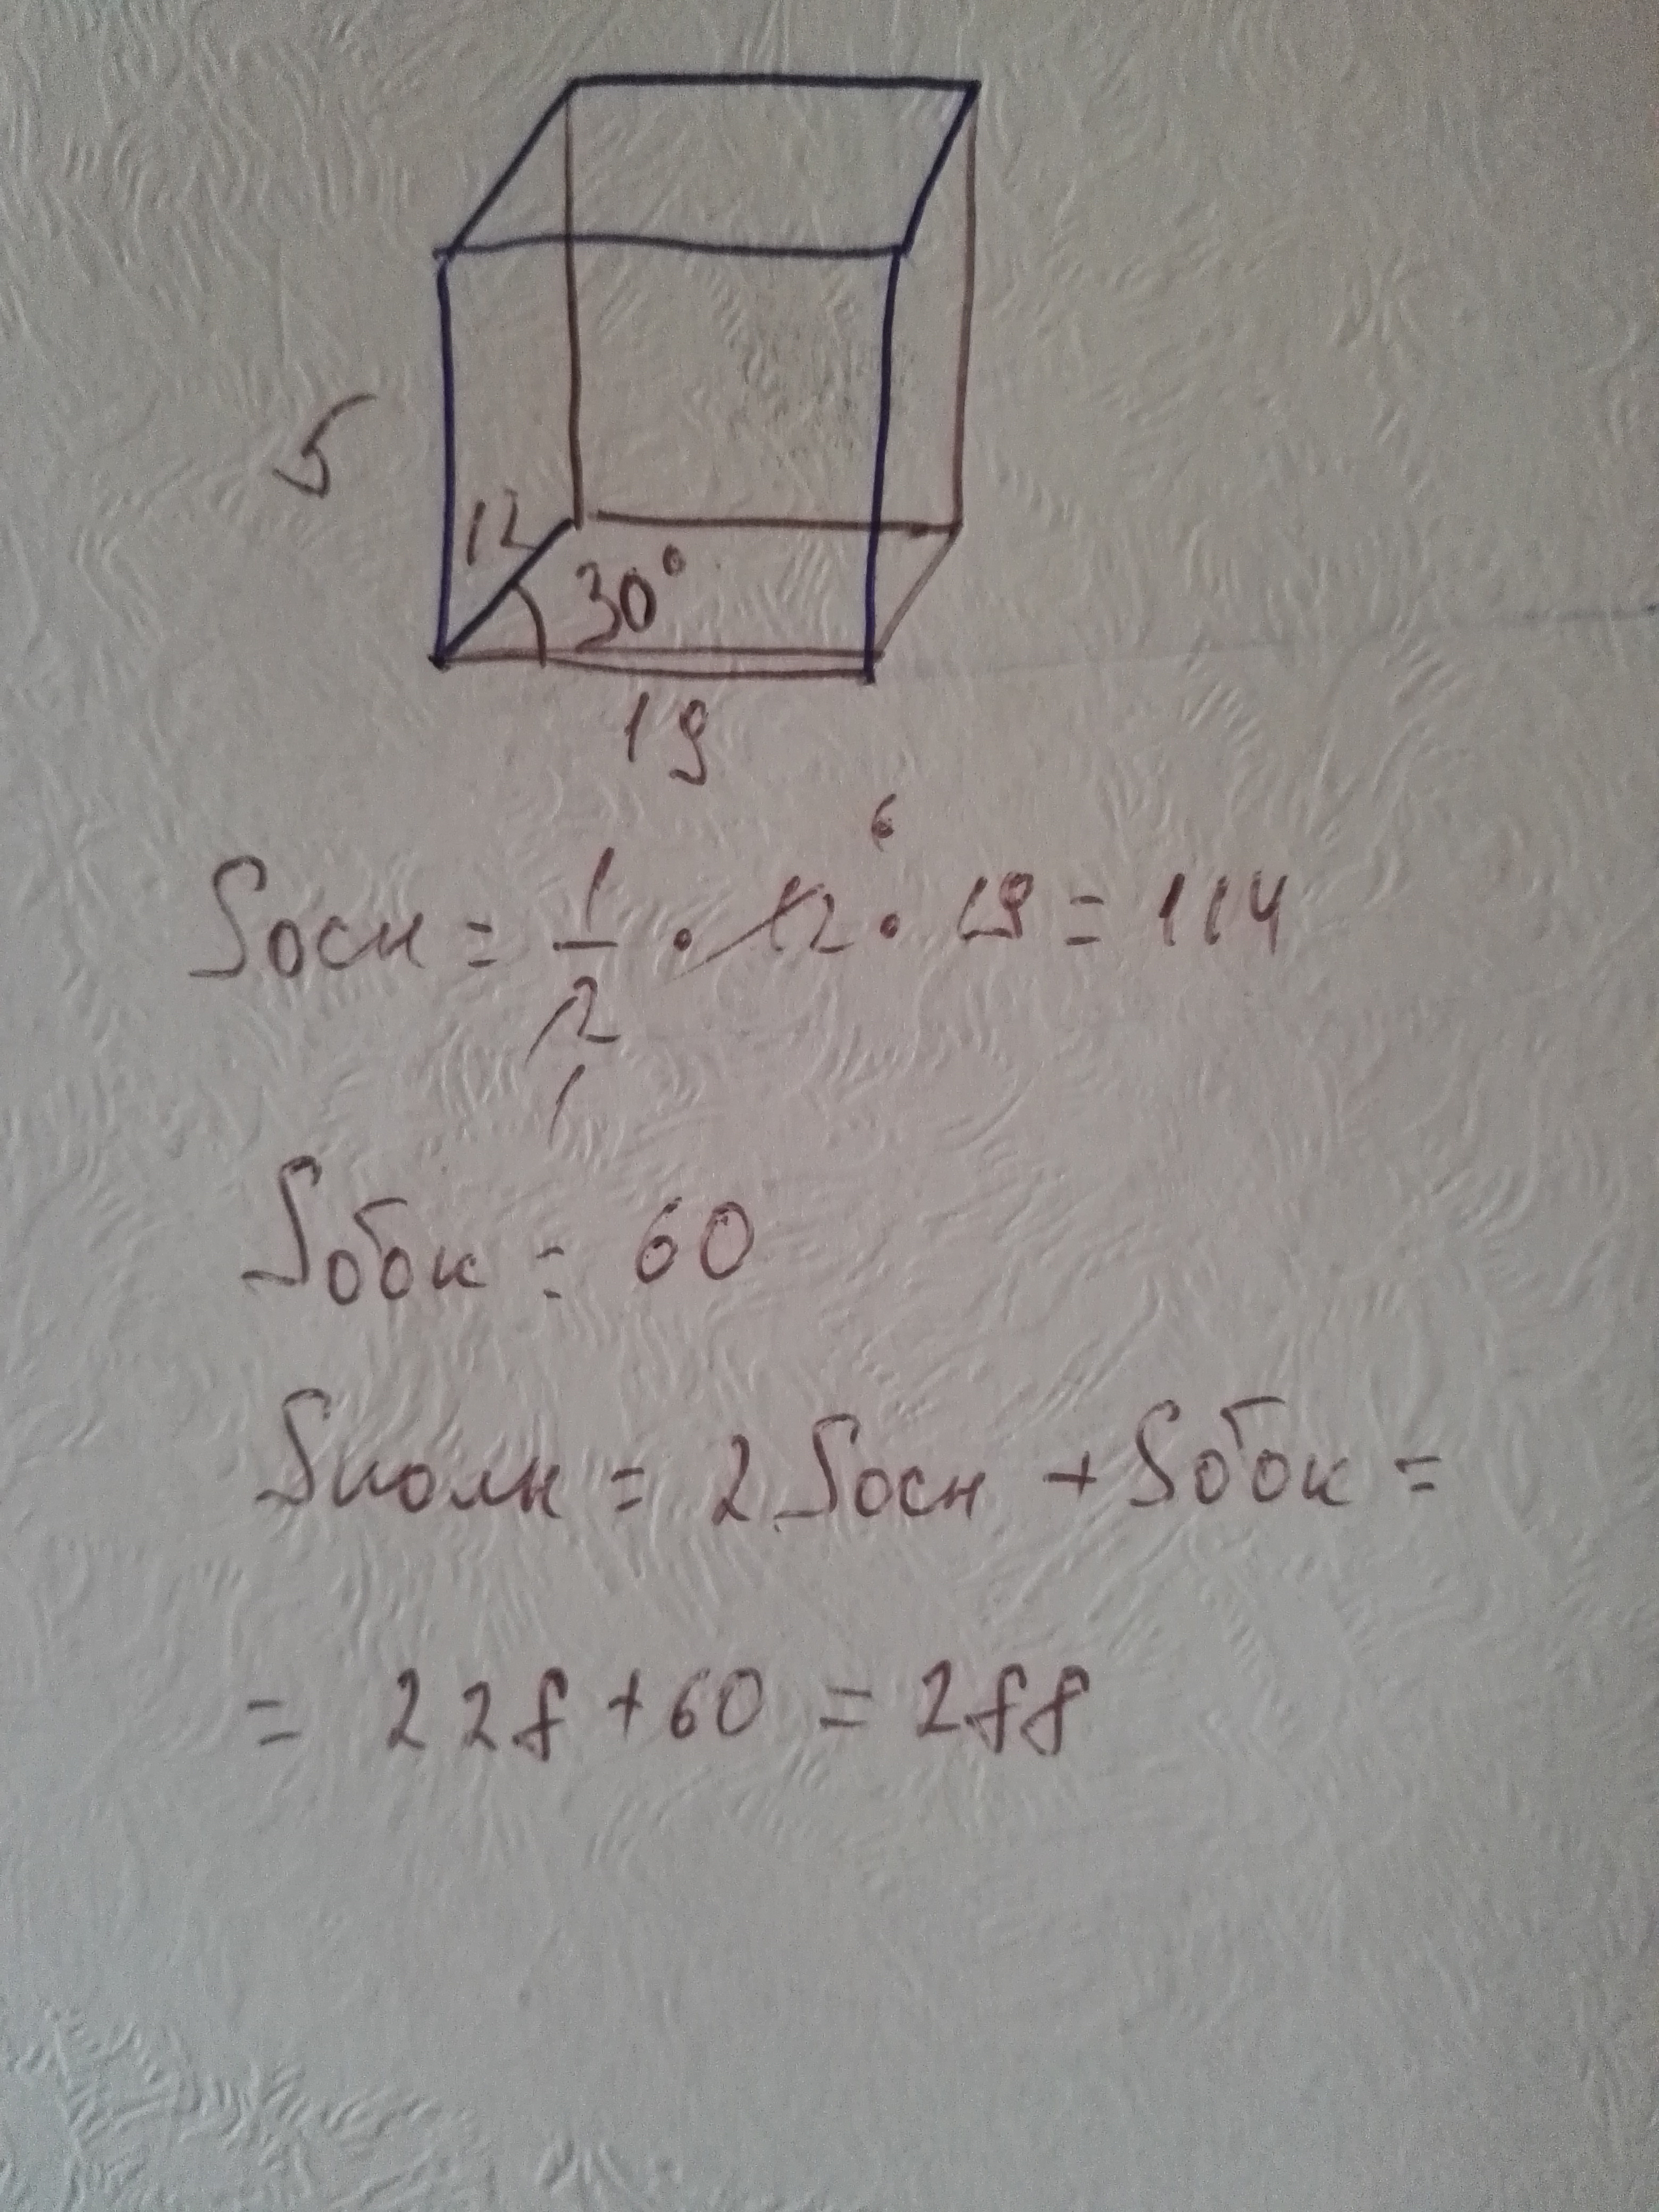 5
12
30°
19
6
Sосн = 1/2 · 12 · 19 = 114
1
Sбок = 60
Sполн = 2Sосн + Sбок =
= 228 + 60 = 288